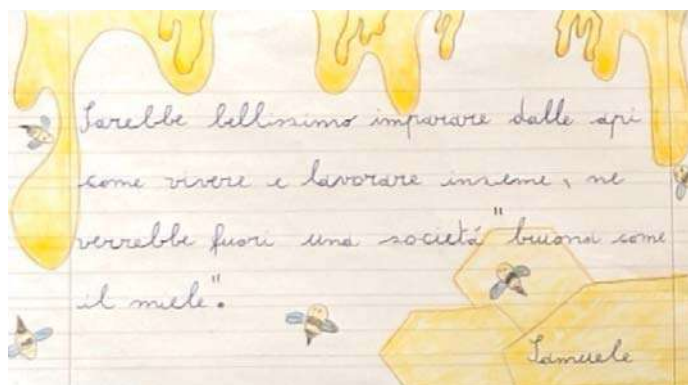 Sarebbe bellissimo imparare dalle api
come vivere e lavorare insieme, ne
verrebbe fuori una societá "buona come
il miele".
Samuele